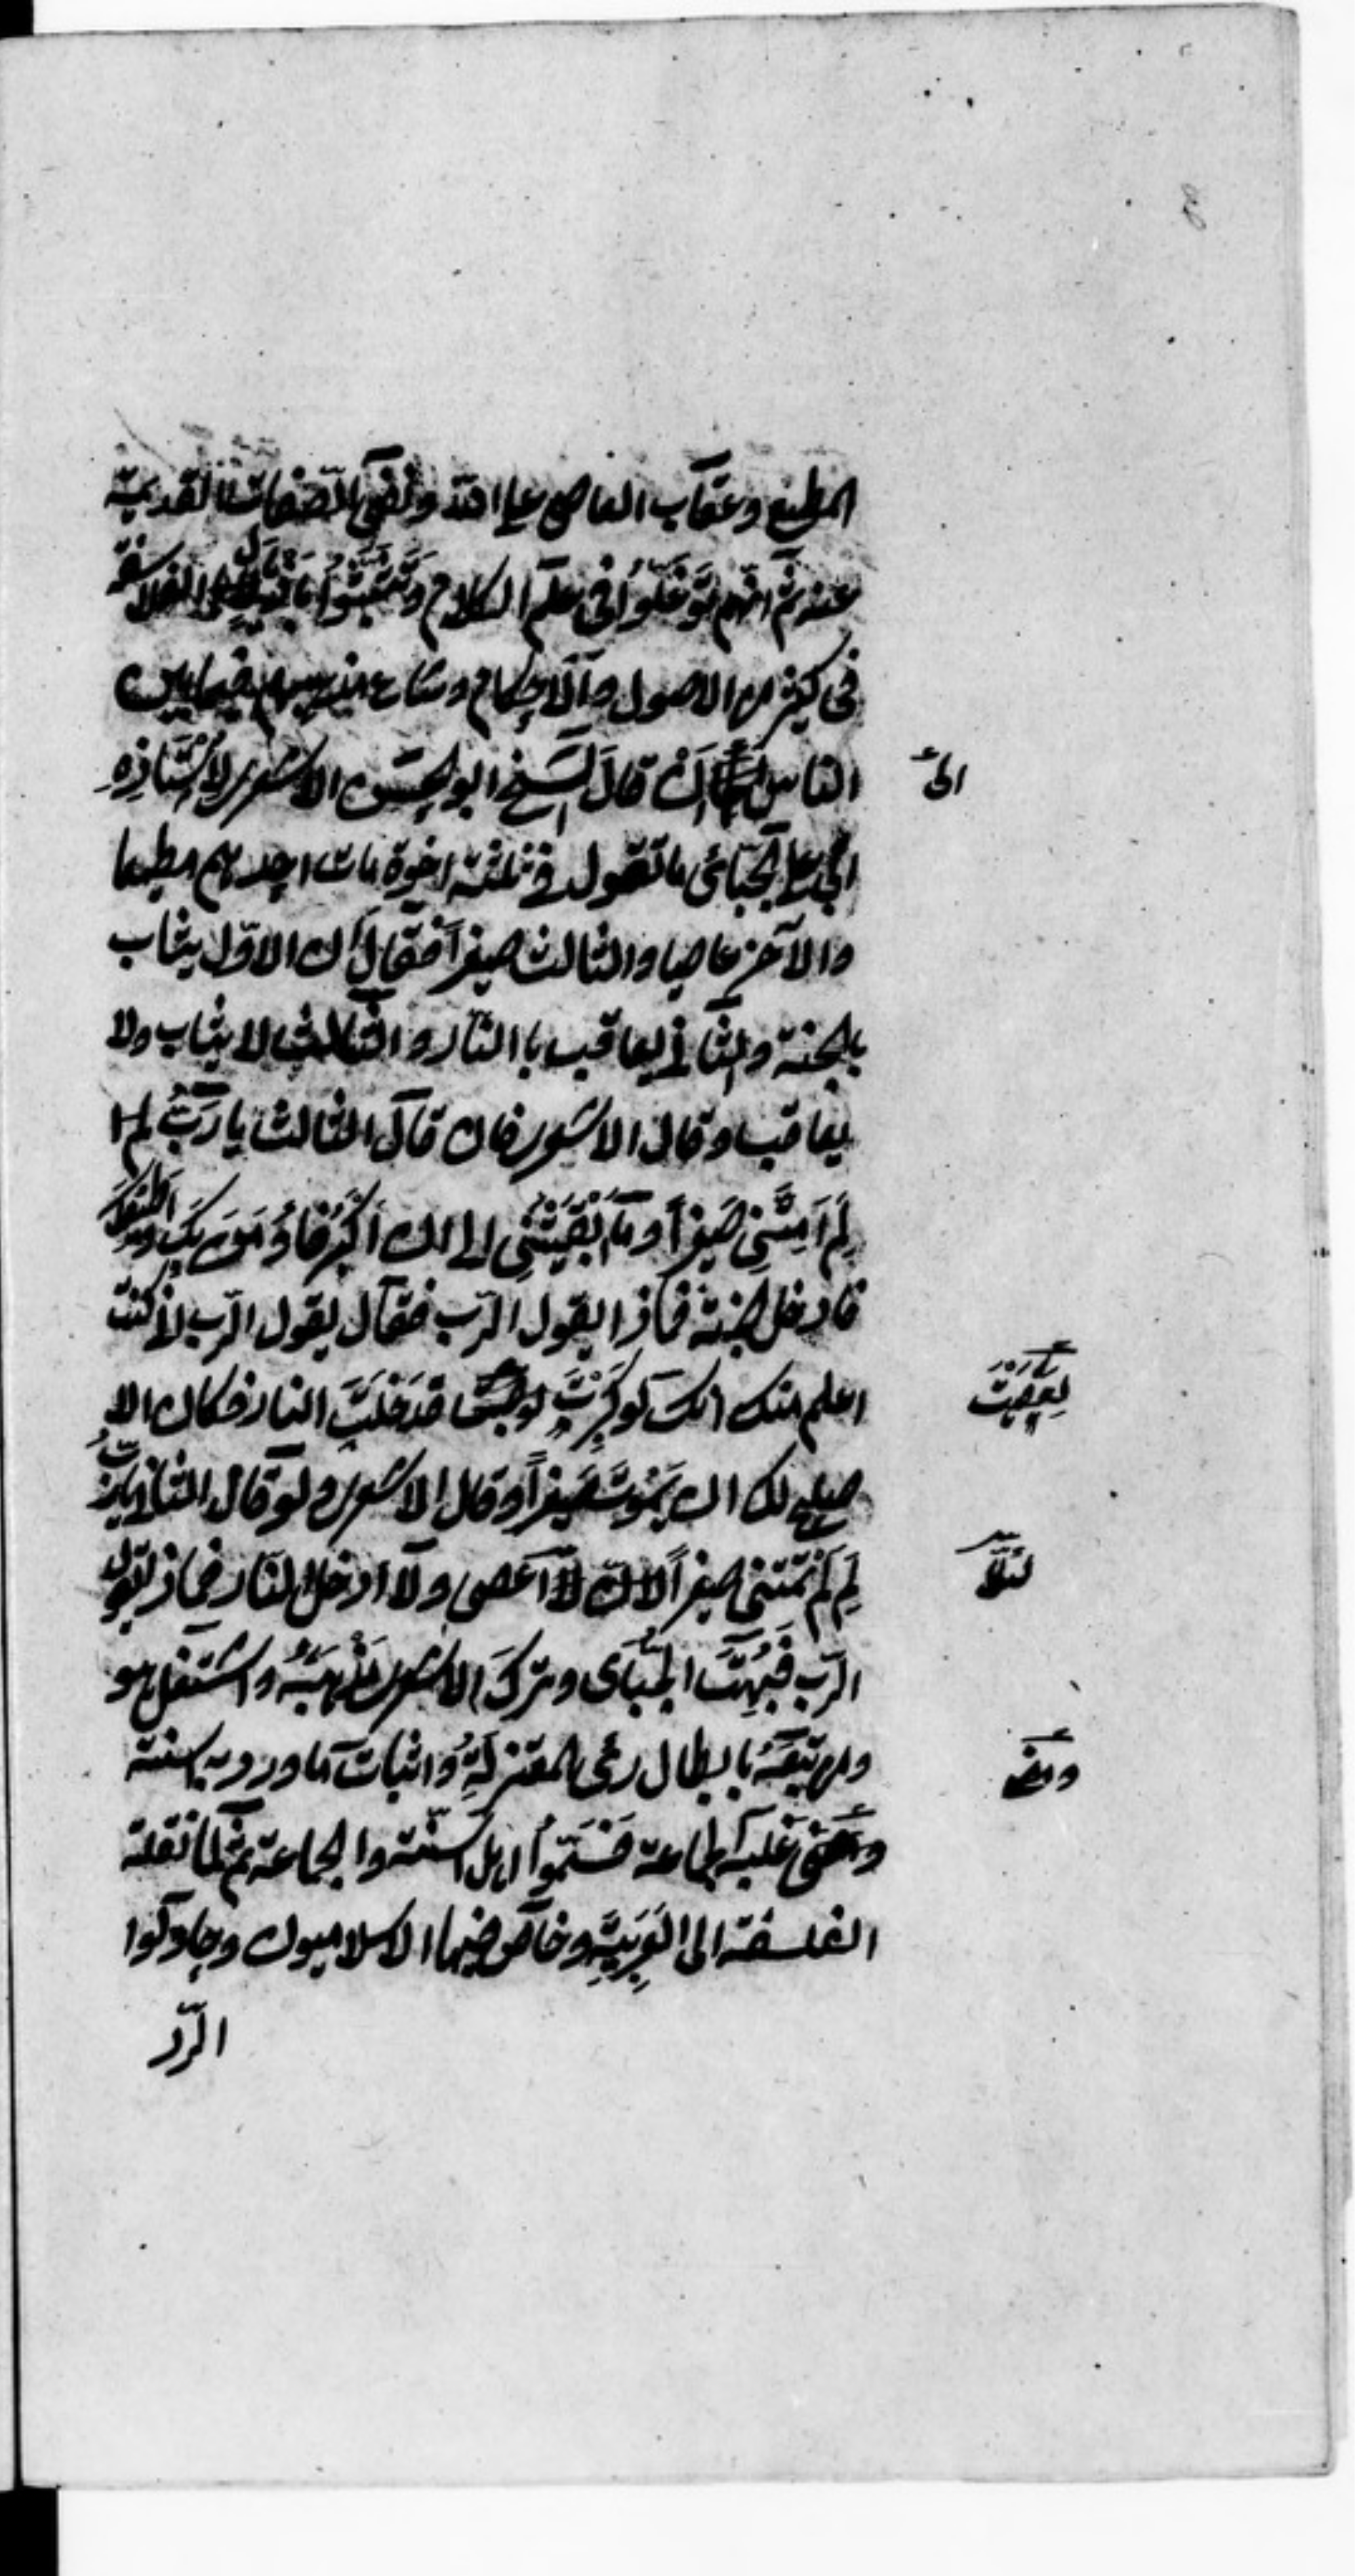 المطيع وعقاب العاصي على الله ونفي الصفات القديمة
عنه ثم انهم توغلوا في علم الكلام وتشبثوا باذيال الفلاسفة
في كثير من الاصول والاحكام وشاع مذهبهم فيما بين
الناس ان قال الشيخ ابو الحسن الاشعري لاستاذه
الى
ابي علي الجبائي ما تقول في ثلثة اخوة مات احدهم مطيعا
والآخر عاصيا والثالث صغيراً فقال ان الاول يثاب
بالجنة والثاني يعاقب باالنار والثالث لا يثاب ولا
يعاقب وقال الاشعري فان قال الثالث يا رب لم
لِمَ اَمَتَّنِي صغيراً وما ابقيتني الى ان اكبر فاومن بك واطيعك
فادخل الجنة فماذا يقول الرب فقال يقول الرب لاني كنت
اعلم منك انك لو كبرت فدخلت النار فكان الا
لعصيت
صلح لك ان تموت صغيراً وقال الاشعري ولو قال الثاني يا رب
لِمَ لَمْ تمتني صغيراً لا اعصي ولا ادخل النار فماذ يقول
لئلا
الرب فبهت الجبائي وترك الاشعري مذهبه واشتغل هو
ومن تبعه بابطال رءى المعتزلة واثبات ما ورد به السنة
ومضى
عليه الجماعة فسموا اهل السنة والجماعة ثم لما نقلة
الفلسفة الى العربية وخاض فيها الاسلاميون وحاولوا
الرد